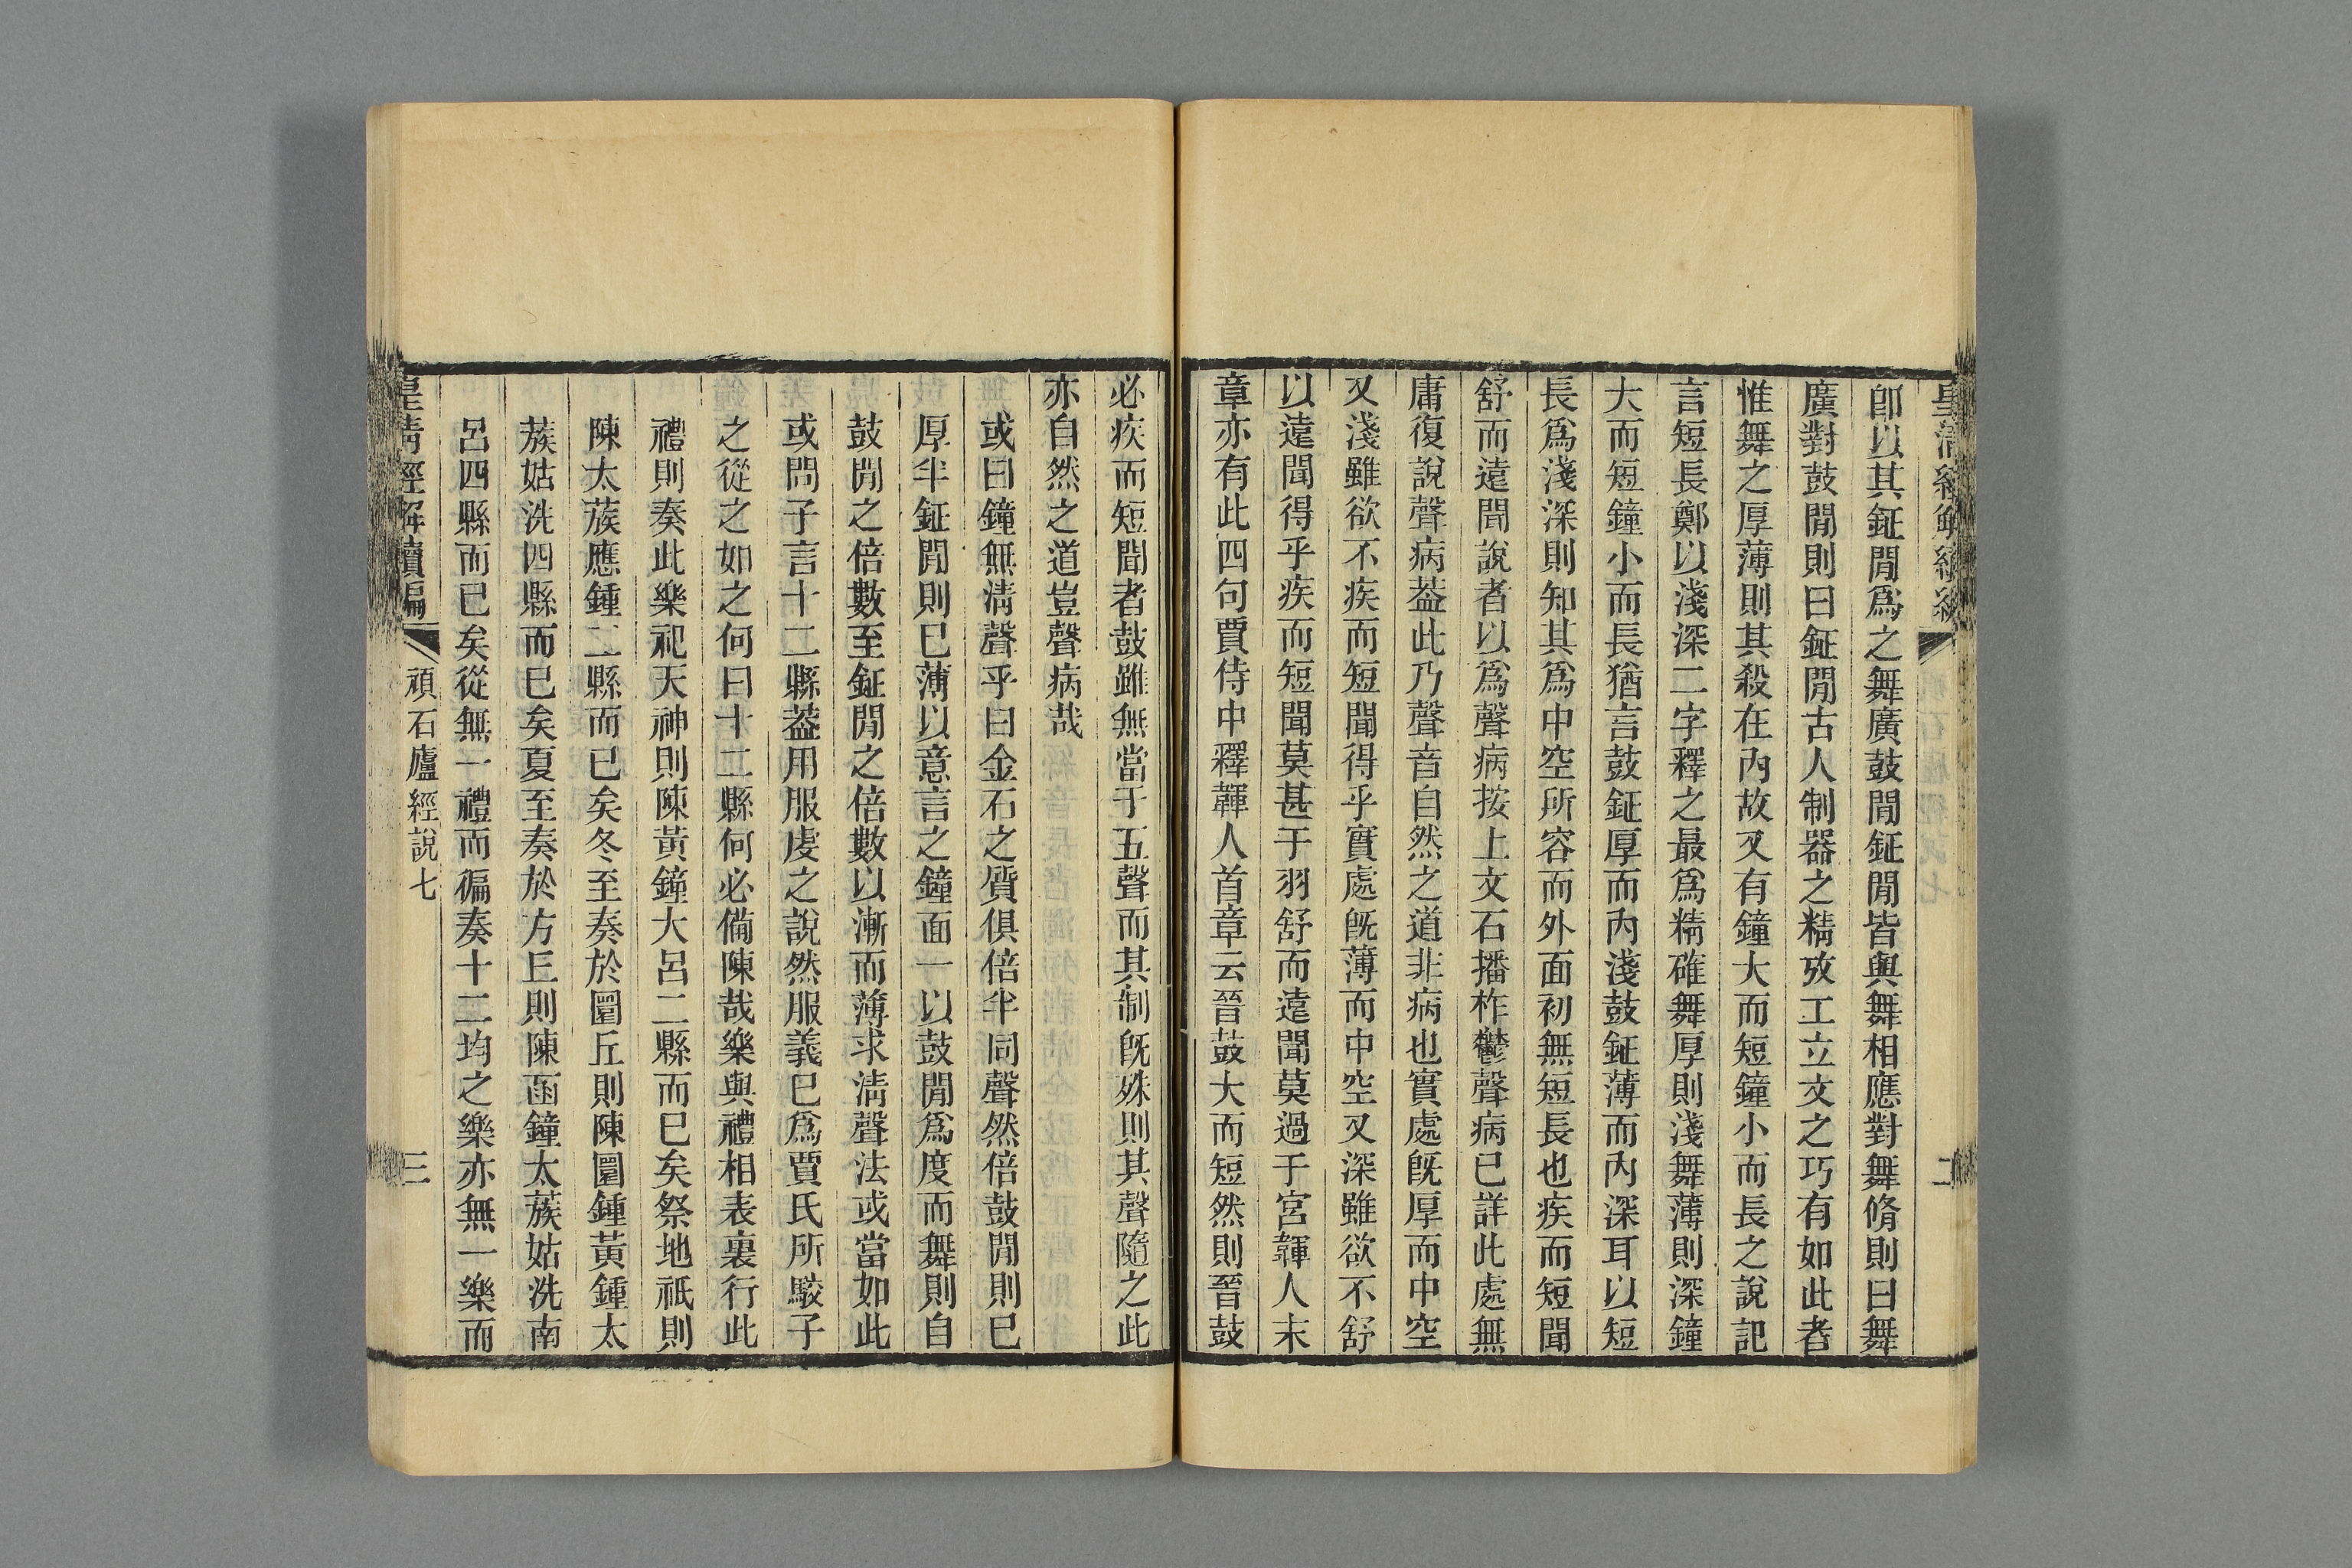 皇清經解續編
二
卽以其鉦閒爲之舞廣鼓閒鉦閒皆與舞相應對舞脩則曰舞
廣對鼓閒則曰鉦閒古人制器之精攷工立文之巧有如此者
惟舞之厚薄則其殺在內故又有鐘大而短鐘小而長之說記
言短長鄭以淺深二字釋之最爲精確舞厚則淺舞薄則深鐘
大而短鐘小而長猶言鼓鉦厚而內淺鼓鉦薄而內深耳以短
長爲淺深則知其爲中空所容而外面初無短長也疾而短聞
舒而遠聞說者以爲聲病按上文石播柞鬱聲病已詳此處無
庸復說聲病葢此乃聲音自然之道非病也實處旣厚而中空
又淺雖欲不疾而短聞得乎實處旣薄而中空又深雖欲不舒
以遠聞得乎疾而短聞莫甚于羽舒而遠聞莫過于宮韗人末
章亦有此四句賈侍中釋韗人首章云晉鼓大而短然則晉鼓
必疾而短聞者鼓雖無當于五聲而其制旣殊則其聲隨之此
亦自然之道豈聲病哉
或曰鐘無淸聲乎曰金石之質俱倍半同聲然倍鼓閒則已
厚半鉦閒則已薄以意言之鐘面一以鼓閒爲度而舞則自
鼓閒之倍數至鉦閒之倍數以漸而薄求淸聲法或當如此
或問子言十二縣葢用服虔之說然服義已爲賈氏所駮子
之從之如之何曰十二縣何必備陳哉樂與禮相表裏行此
禮則奏此樂祀天神則陳黃鐘大呂二縣而已矣祭地祇則
陳太蔟應鍾二縣而已矣冬至奏於圜丘則陳圜鍾黃鍾太
蔟姑洗四縣而已矣夏至奏於方丘則陳函鐘太蔟姑洗南
呂四縣而已矣從無一禮而徧奏十二均之樂亦無一樂而
皇淸經解續編
頑石廬經說七
三